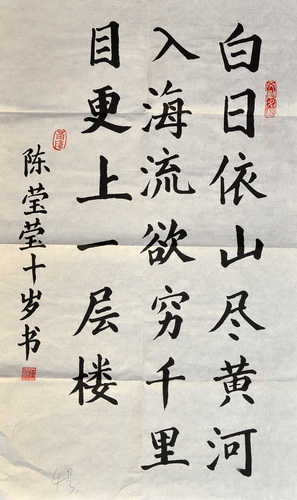 白日依山尽黄河
入海流欲穷千里
目更上一层楼
陈莹莹十岁书